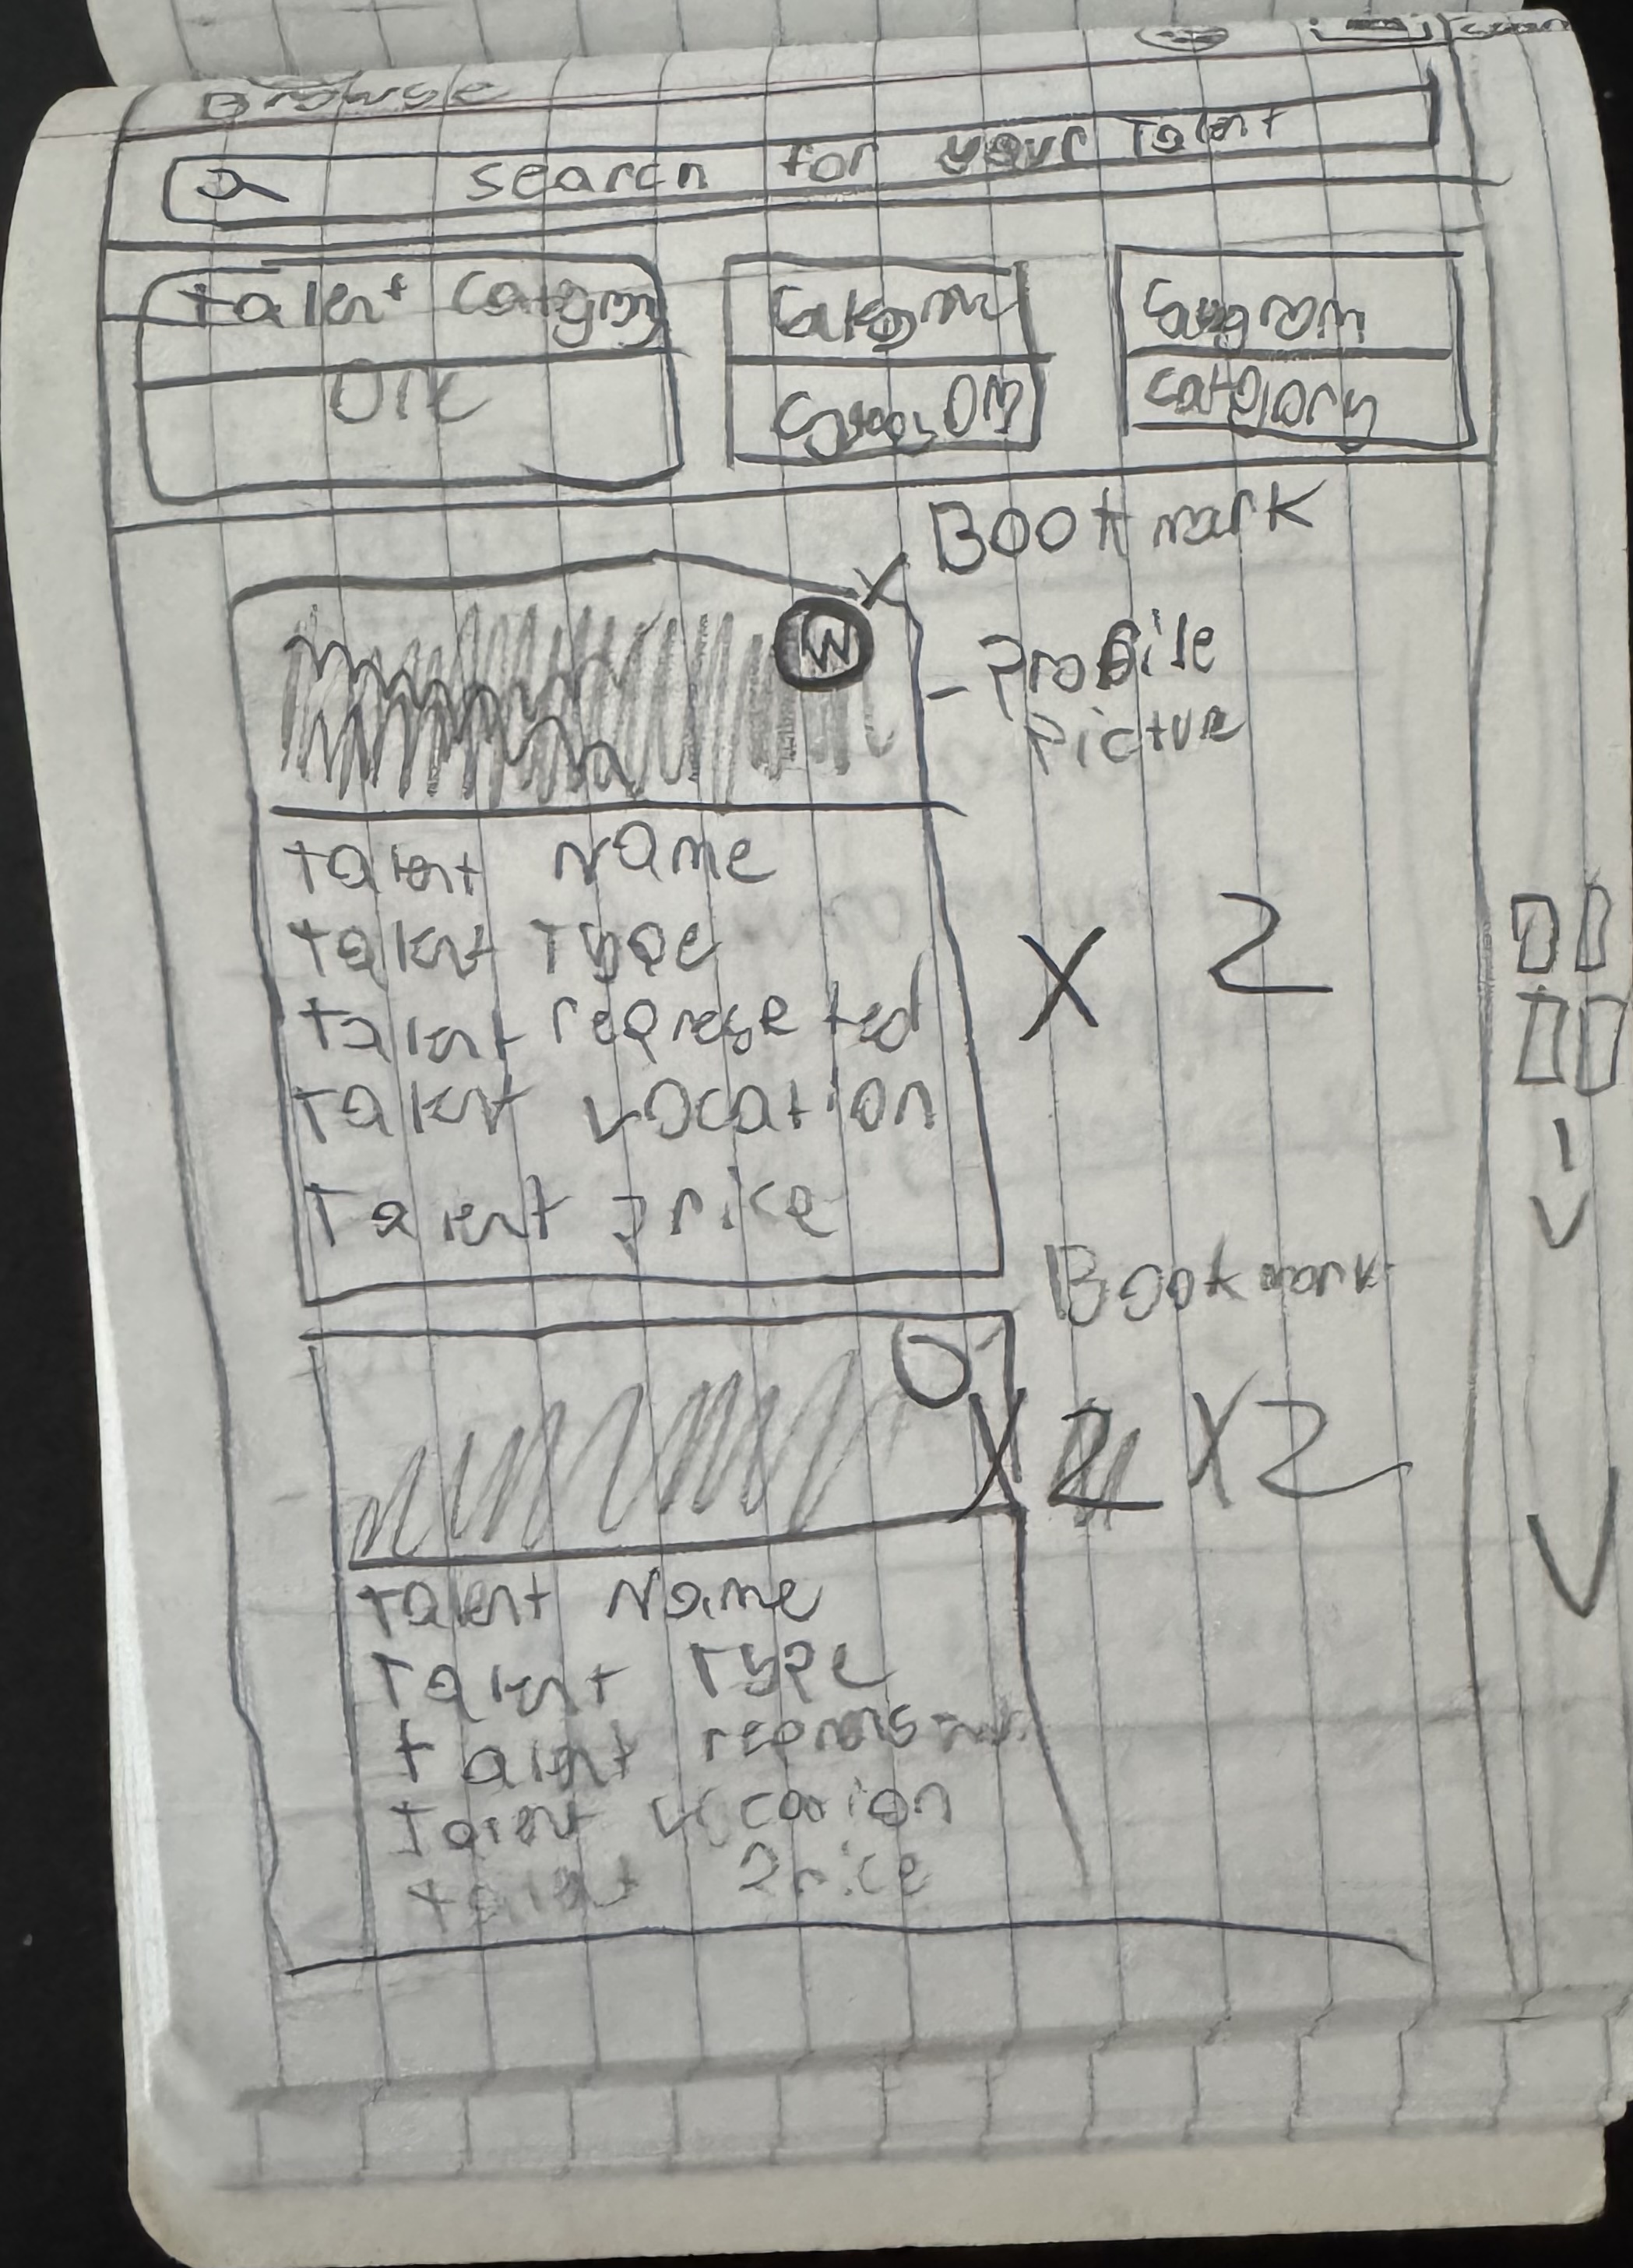 Browse
search for your Talent
talent
category
Bookmark
W
- Profile
Picture
talent Name
talent Type
talent represeted
Talent Location
Talent price
X 2
Bookmark
X 2 X2
Talent Name
Talent Type
talent
Talent Location
talent Price